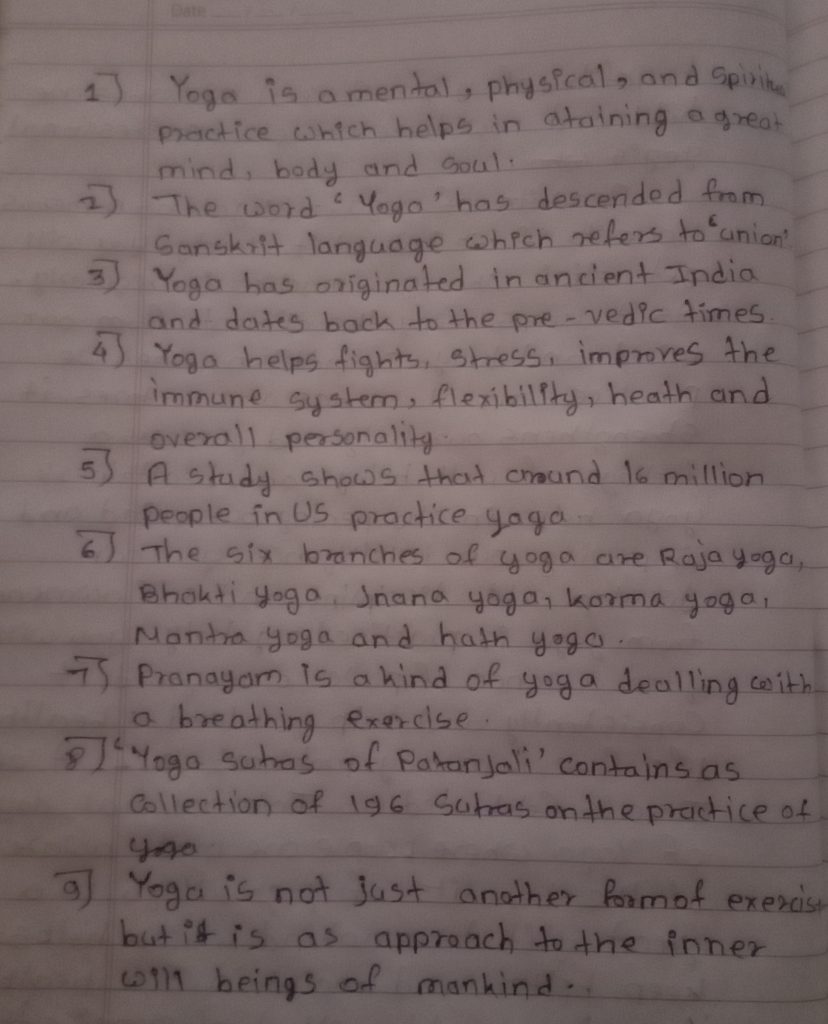 Date
1) Yoga is a mental, physical, and Spiritu
practice which helps in ataining a great
mind, body and Soul.
2) The word 'Yoga' has descended from
Sanskrit language which refers to 'union'
3) Yoga has originated in ancient India
and dates back to the pre-vedic times.
4) Yoga helps fights, stress, improves the
immune system, flexibility, heath and
overall personality.
5) A study shows that around 16 million
people in US practice yoga.
6) The six branches of yoga are Raja yoga,
Bhakti yoga, Jnana yoga, karma yoga,
Mantra yoga and hath yoga.
7) Pranayam is a kind of yoga dealling with
a breathing exercise.
8) 'Yoga sutras of Patanjali' contains as
collection of 196 Sutras on the practice of
yoga
9) Yoga is not just another form of exercis
but it is as approach to the inner
will beings of mankind.